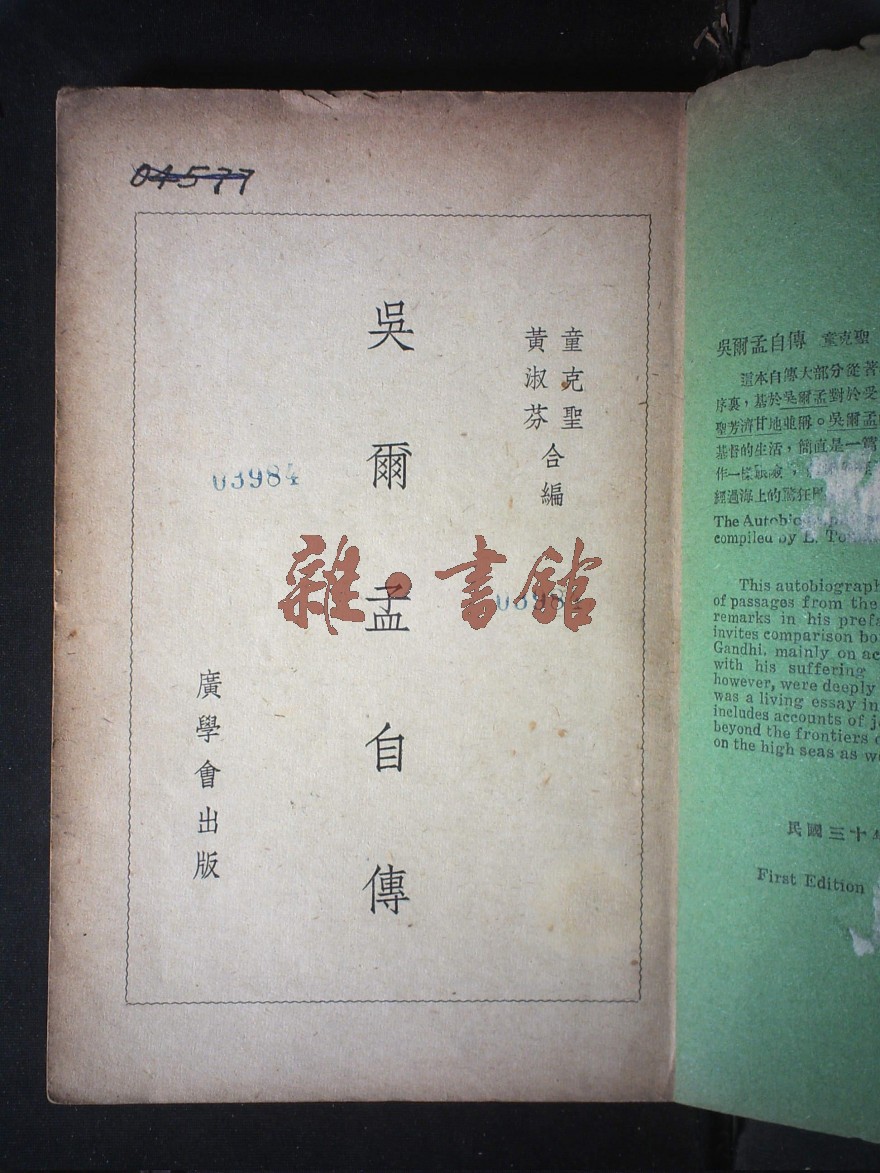 04577
童克聖
黃淑芬
合編
吳爾孟自傳
03984
03984
雜·書館
廣學會出版
吳爾孟自傳 童克聖
這本自傳大部分從著
序裏,基於吳爾孟對於受
聖芳濟甘地並稱。吳爾孟
基督的生活,簡直是一篇
作一樣
經過海上的驚狂
The Autobiog
compiled by E. To
This autobiograph
of passages from the
remarks in his prefa
invites comparison bo
Gandhi. mainly on ac
with his suffering
however, were deeply
was a living essay in
includes accounts of jo
beyond the frontiers
on the high seas as we
民國三十
First Edition